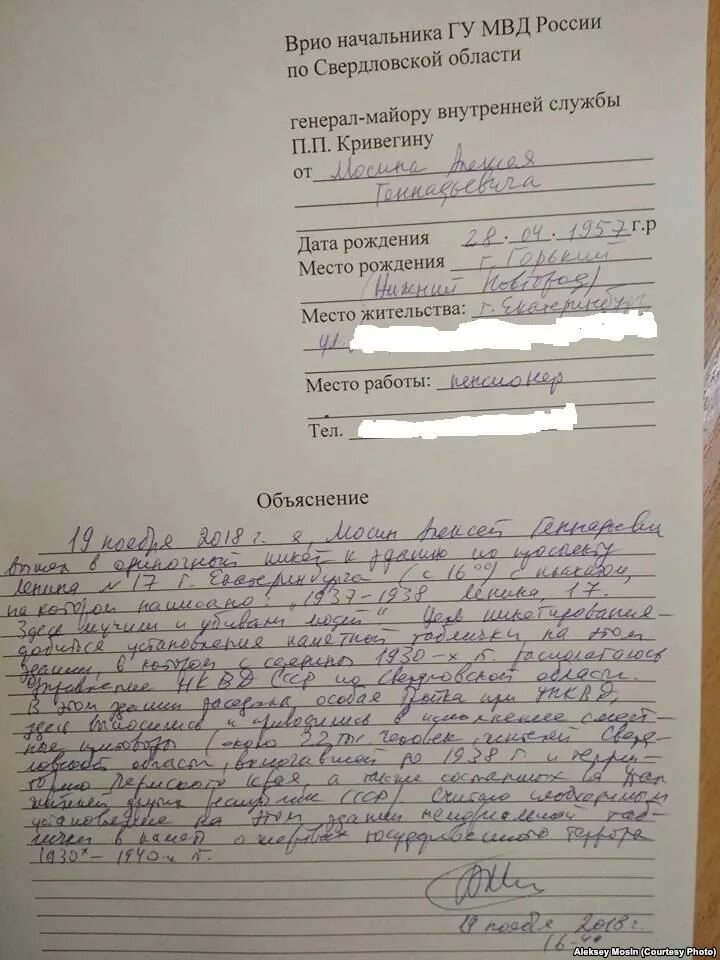 Врио начальника ГУ МВД России
по Свердловской области
генерал-майору внутренней службы
П.П. Кривегину
от Мосина Алексея
Геннадьевича
Дата рождения 28. 04. 1957 г.р
Место рождения г. Горький
(Нижний Новгород)
Место жительства: г. Екатеринбург
ул.
Место работы: пенсионер
Тел.
Объяснение
19 ноября 2018 г. я, Мосин Алексей Геннадьевич
вышел в одиночный пикет к зданию по проспекту
Ленина № 17 г. Екатеринбурга (с 16 00) с плакатом,
на котором написано: "1937-1938 Ленина, 17.
Здесь мучили и убивали людей" Цель пикетирования -
добиться установления памятной таблички на этом
здании, в котором с середины 1930-х г. располагалось
Управление НКВД СССР по Свердловской области.
В этом здании заседала особая Тройка при НКВД,
здесь выносились и приводились в исполнение смерт-
ные приговоры (около 22 тыс человек жителей Сверд-
ловской области, включавшей до 1938 г. и терри-
торию Пермского края, а также
жителей других республик СССР) Считаю необходимым
установление на этом здании мемориальной таб-
лички в память о жертвах государственного террора
1930х - 1940-х г.
19 ноября 2018г.
16-40
Aleksey Mosin (Courtesy Photo)